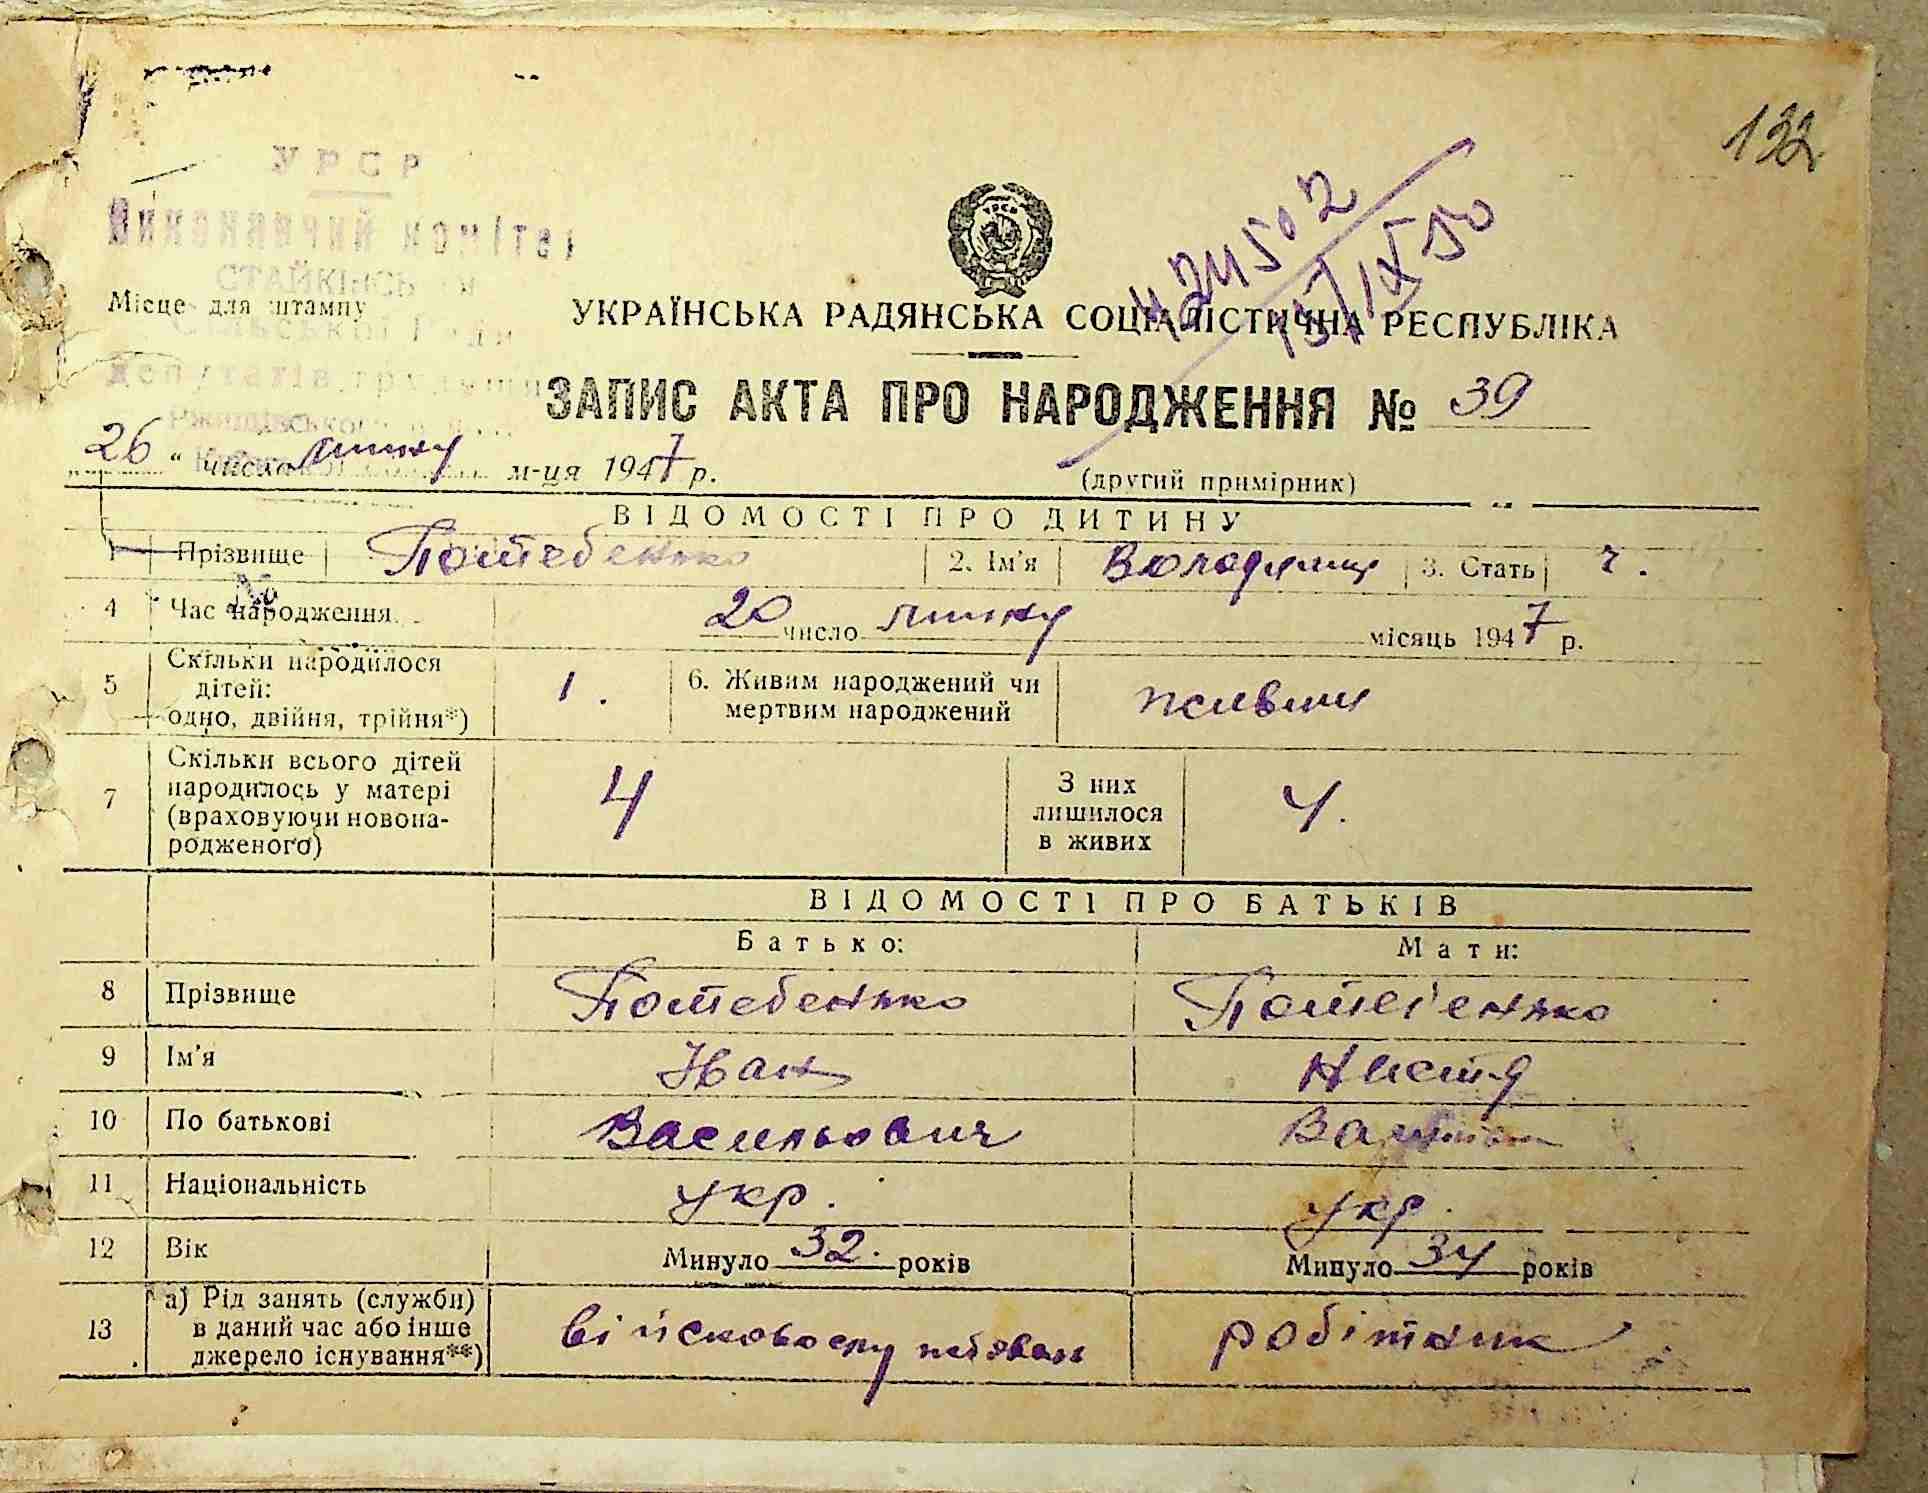 132
УРСР
Виконавчий комітет
СТАЙКІВСЬКОЇ
Сільської Ради
депутатів трудящих
Ржищівського
Місце для штампу
УКРАЇНСЬКА РАДЯНСЬКА СОЦІАЛІСТИЧНА РЕСПУБЛІКА
ЗАПИС АКТА ПРО НАРОДЖЕННЯ № 39
„26“ число липня м-ця 1947 р.
(другий примірник)
ВІДОМОСТІ ПРО ДИТИНУ
1 Прізвище Потебенько 2. Ім'я Володимир 3. Стать ч.
4 Час народження 20 число липня місяць 1947 р.
5 Скільки народилося дітей: одно, двійня, трійня*) 1. 6. Живим народжений чи мертвим народжений живим
7 Скільки всього дітей народилось у матері (враховуючи новонародженого) 4 З них лишилося в живих 4.
ВІДОМОСТІ ПРО БАТЬКІВ
Батько: Мати:
8 Прізвище Потебенько Потебенько
9 Ім'я Іван Настя
10 По батькові Васильович
11 Національність укр. укр.
12 Вік Минуло 32. років Минуло 34 років
13 а) Рід занять (служби) в даний час або інше джерело існування**) робітник